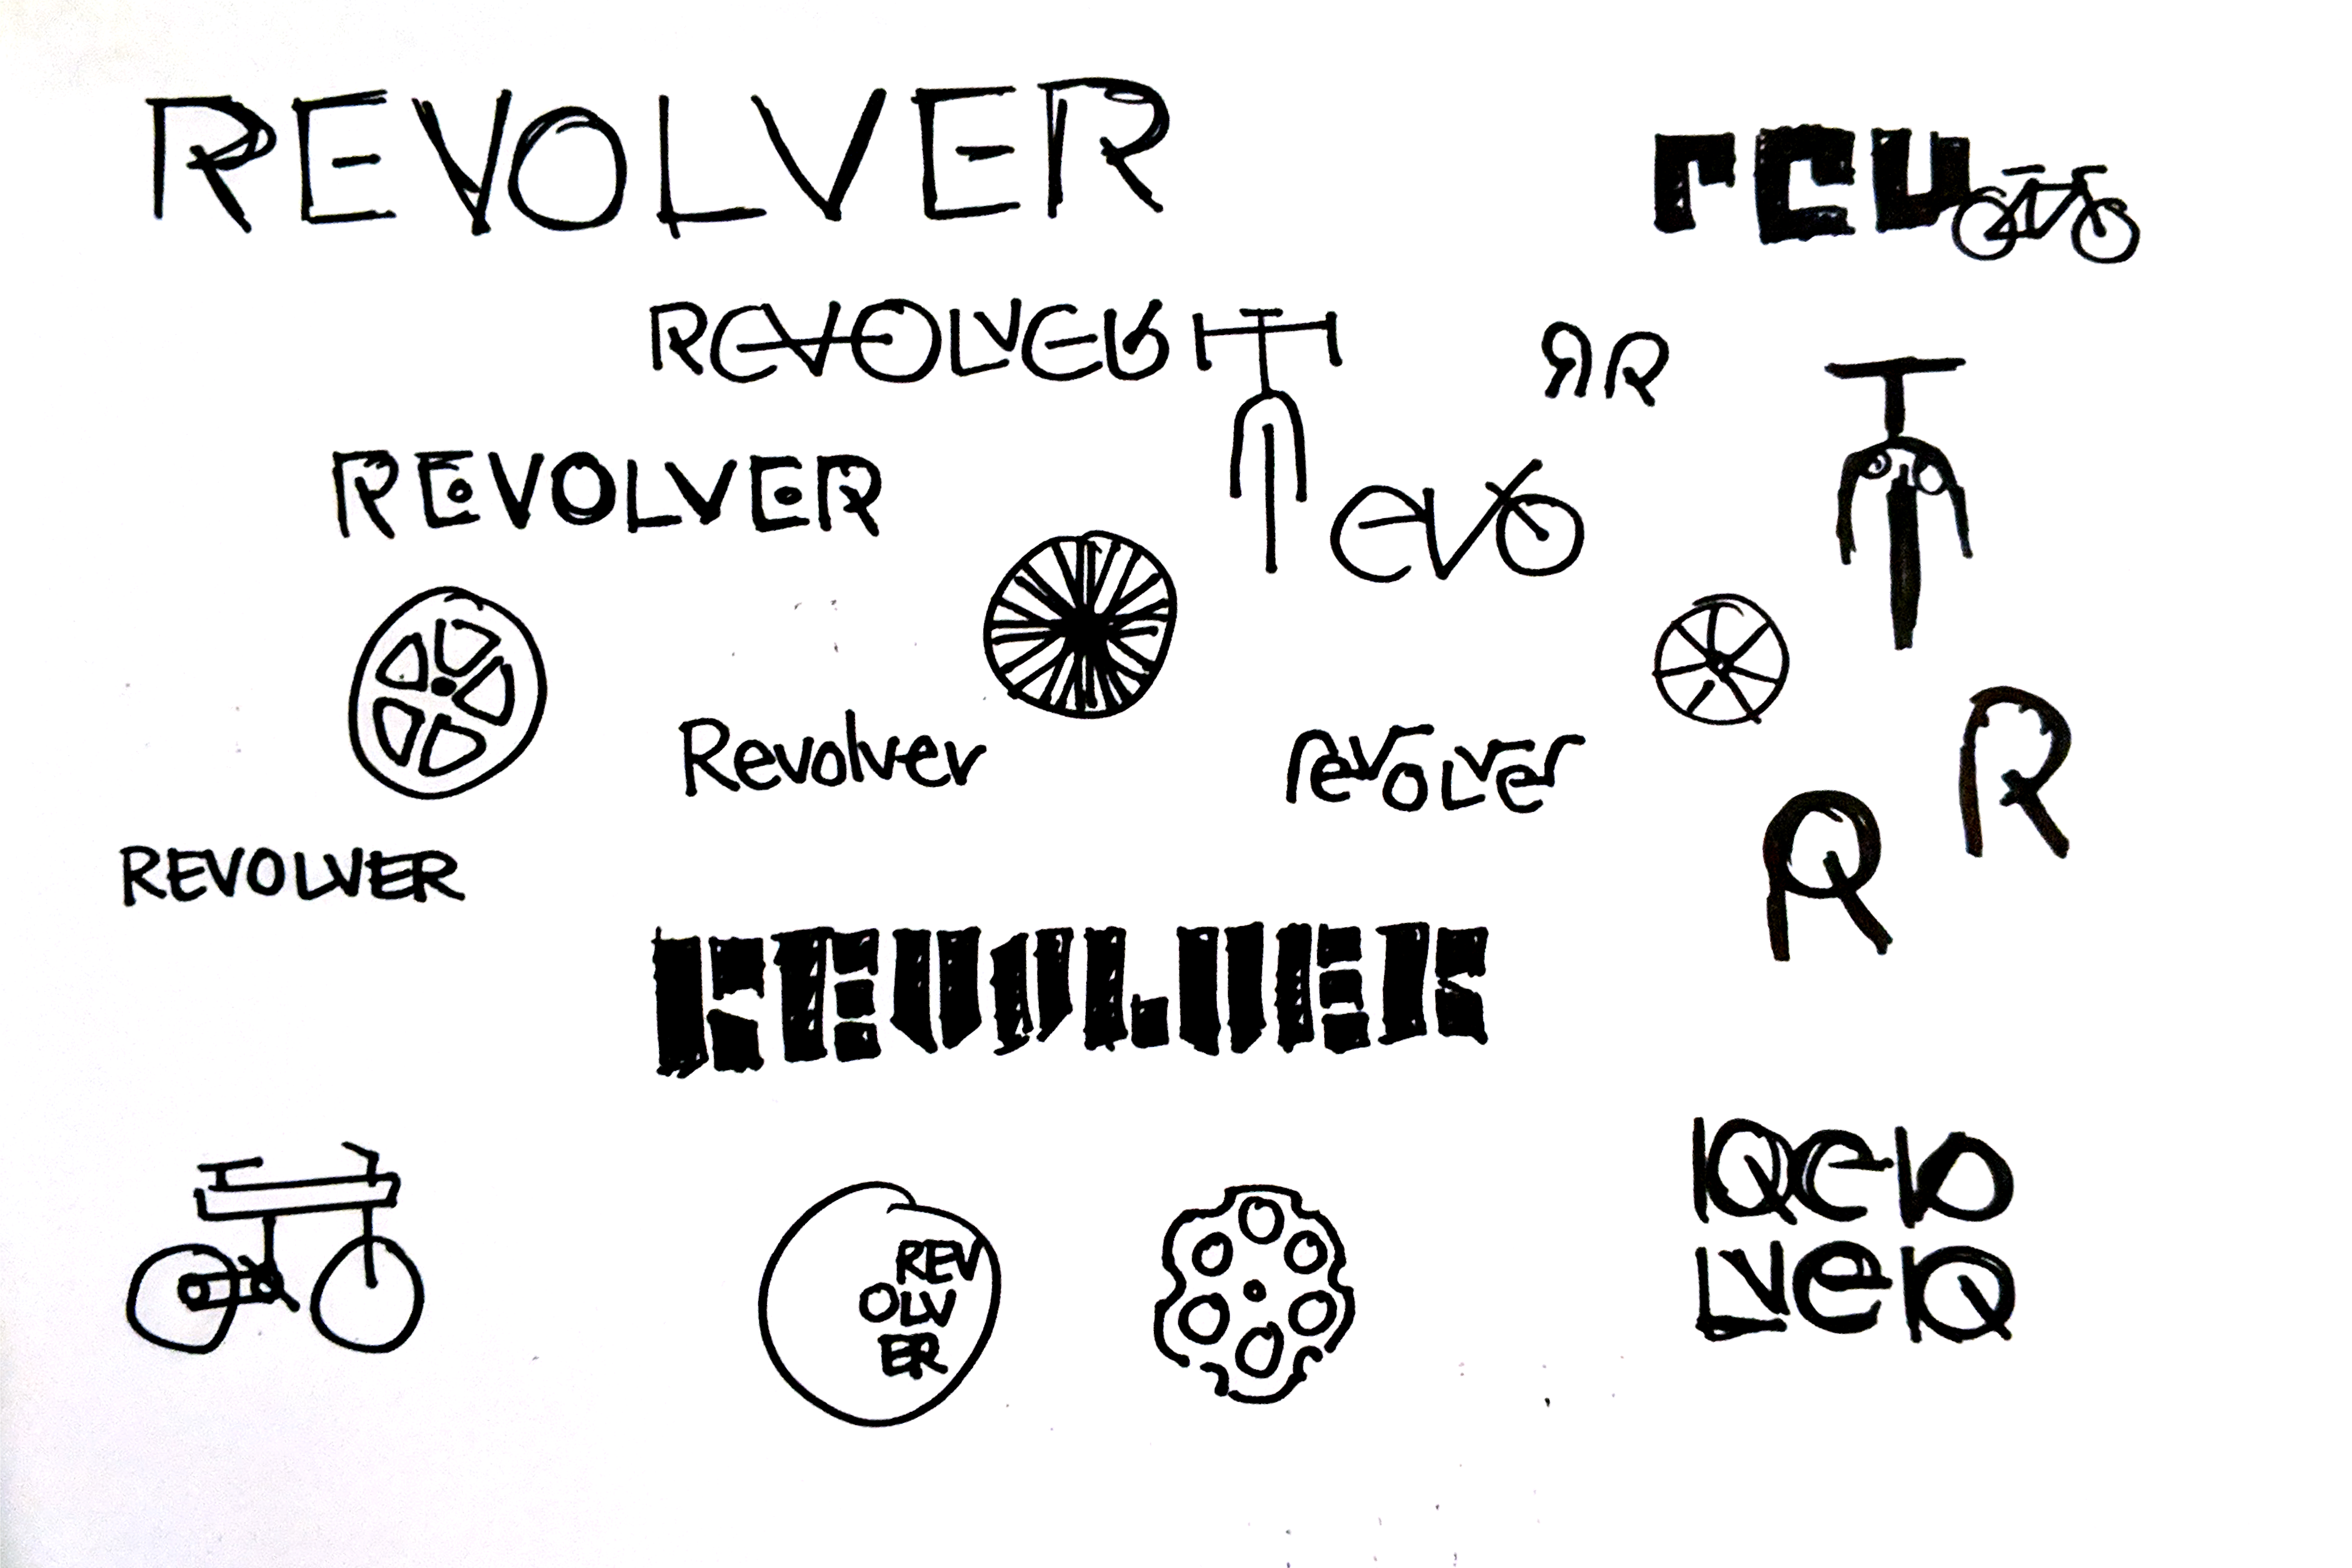 REVOLVER
rev
REVOLVER
RR
REVOLVER
evo
Revolver
revolver
R
R
REVOLVER
REVOLVER
REV
OLV
ER
Revo
lveR